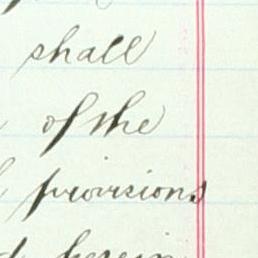 shall
of the
provisions
herein